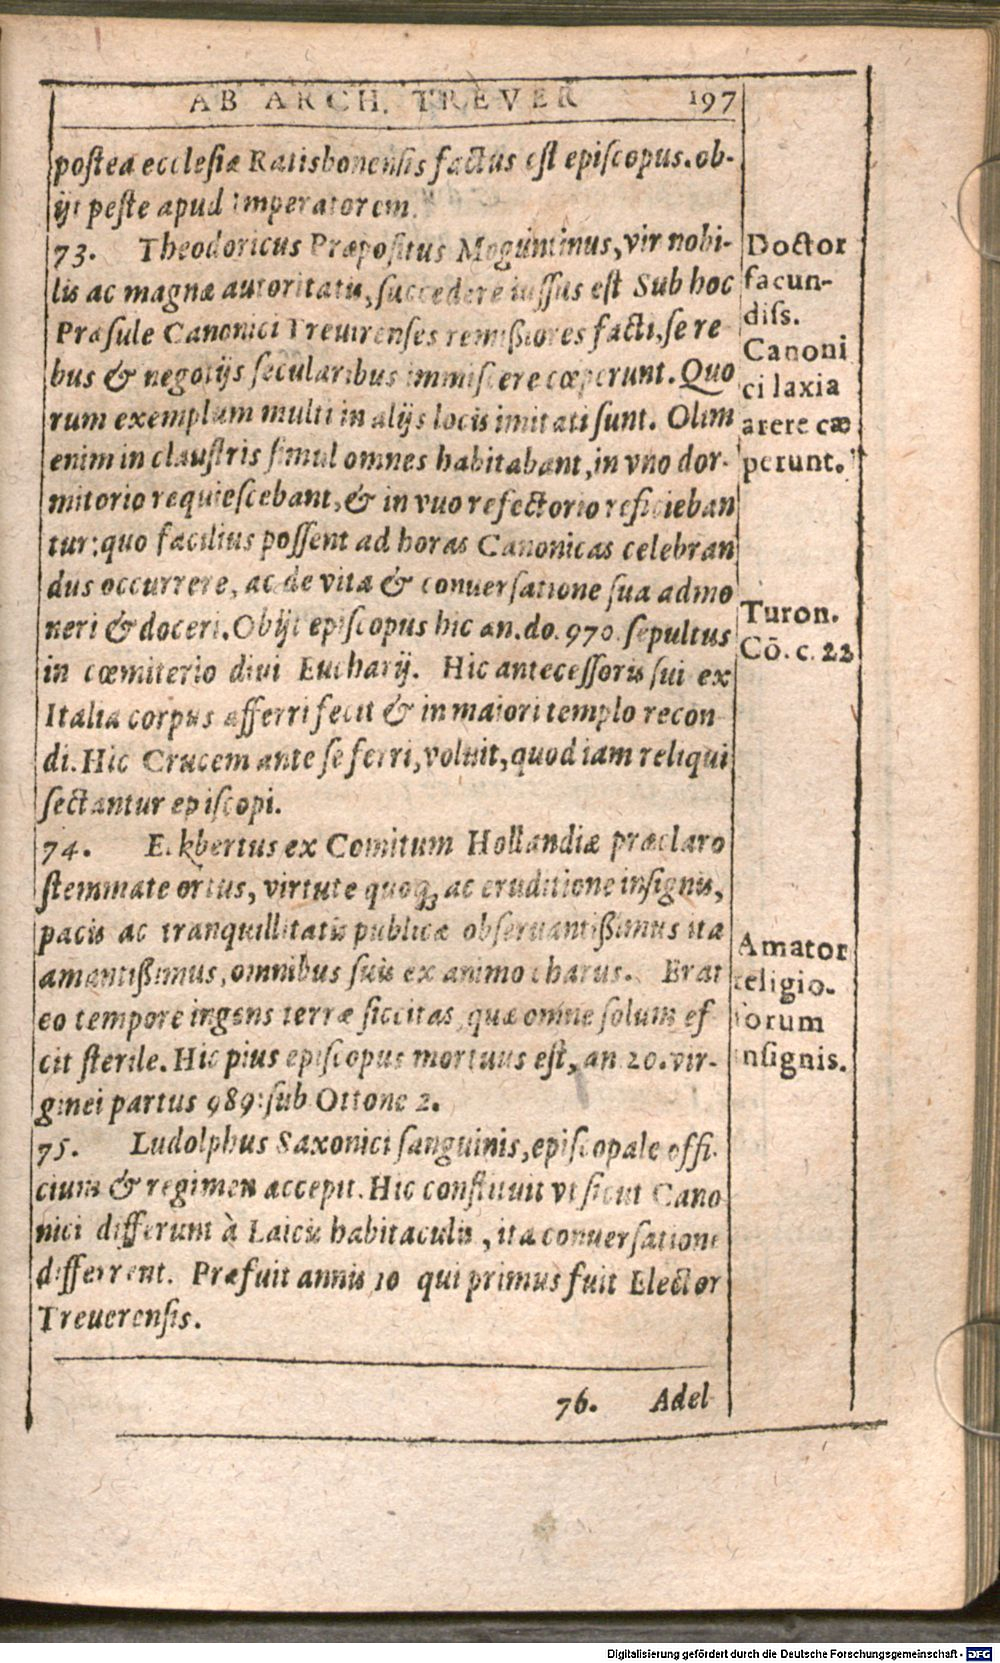 AB ARCH. TREVER 197
postea ecclesiæ Ratisbonensis factus est episcopus. ob-
ijt peste apud Imperatorem.
73. Theodoricus Præpositus Moguntinus, vir nobi-
lis ac magnæ autoritatis, succedere iussus est Sub hoc
Præsule Canonici Treuirenses remißiores facti, se re
bus & negotijs secularibus immiscere cœperunt. Quo
rum exemplum multi in alijs locis imitati sunt. Olim
enim in claustris simul omnes habitabant, in vno dor-
mitorio requiescebant, & in vuo refectorio reficieban
tur: quo facilius possent ad horas Canonicas celebran
dus occurrere, ac de vita & conuersatione sua admo
neri & doceri. Obijt episcopus hic an. do. 970. sepultus
in cœmiterio divi Eucharij. Hic antecessoris sui ex
Italia corpus afferri fecit & in maiori templo recon
di. Hic Crucem ante se ferri, voluit, quod iam reliqui
sectantur episcopi.
74. Eckbertus ex Comitum Hollandiæ præclaro
stemmate ortus, virtute quoq;, ac eruditione insignis,
pacis ac tranquillitatis publicæ obseruantißimus ita
amantißimus, omnibus suis ex animo charus. Erat
eo tempore ingens terræ siccitas, quæ omne solum ef
cit sterile. Hic pius episcopus mortuus est, an 20. vir-
ginei partus 989: sub Ottone 2.
75. Ludolphus Saxonici sanguinis, episcopale offi-
cium & regimen accepit. Hic constituit vt sicut Cano
nici differunt à Laicis habitaculis, ita conuersatione
differrent. Præfuit annis 10 qui primus fuit Elector
Treuerensis.
76. Adel
Doctor
facun-
diss.
Canoni
ci laxia
arere cæ
perunt.
Turon.
Cō. c. 23
Amator
religio-
sorum
insignis.
Digitalisierung gefördert durch die Deutsche Forschungsgemeinschaft - DFG